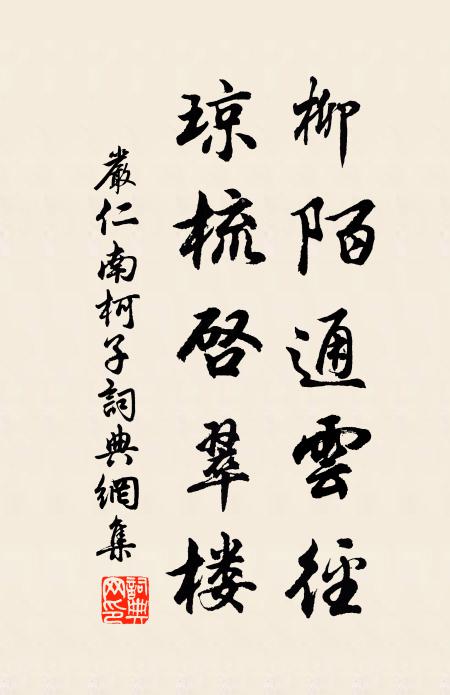 柳陌通雲徑
琼梳啓翠楼
嚴仁南柯子詞典網集
詞典網印